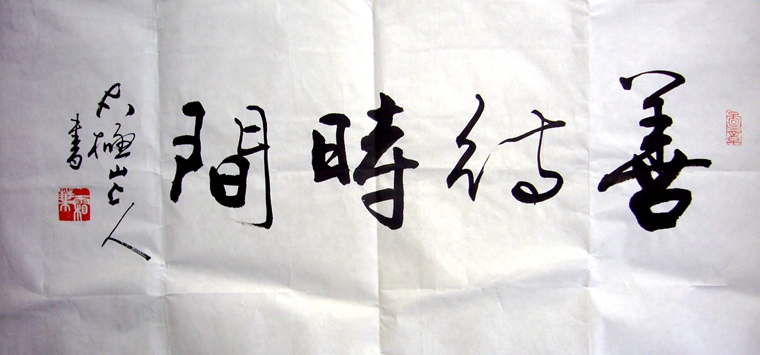 善待時間
太極山上人
書